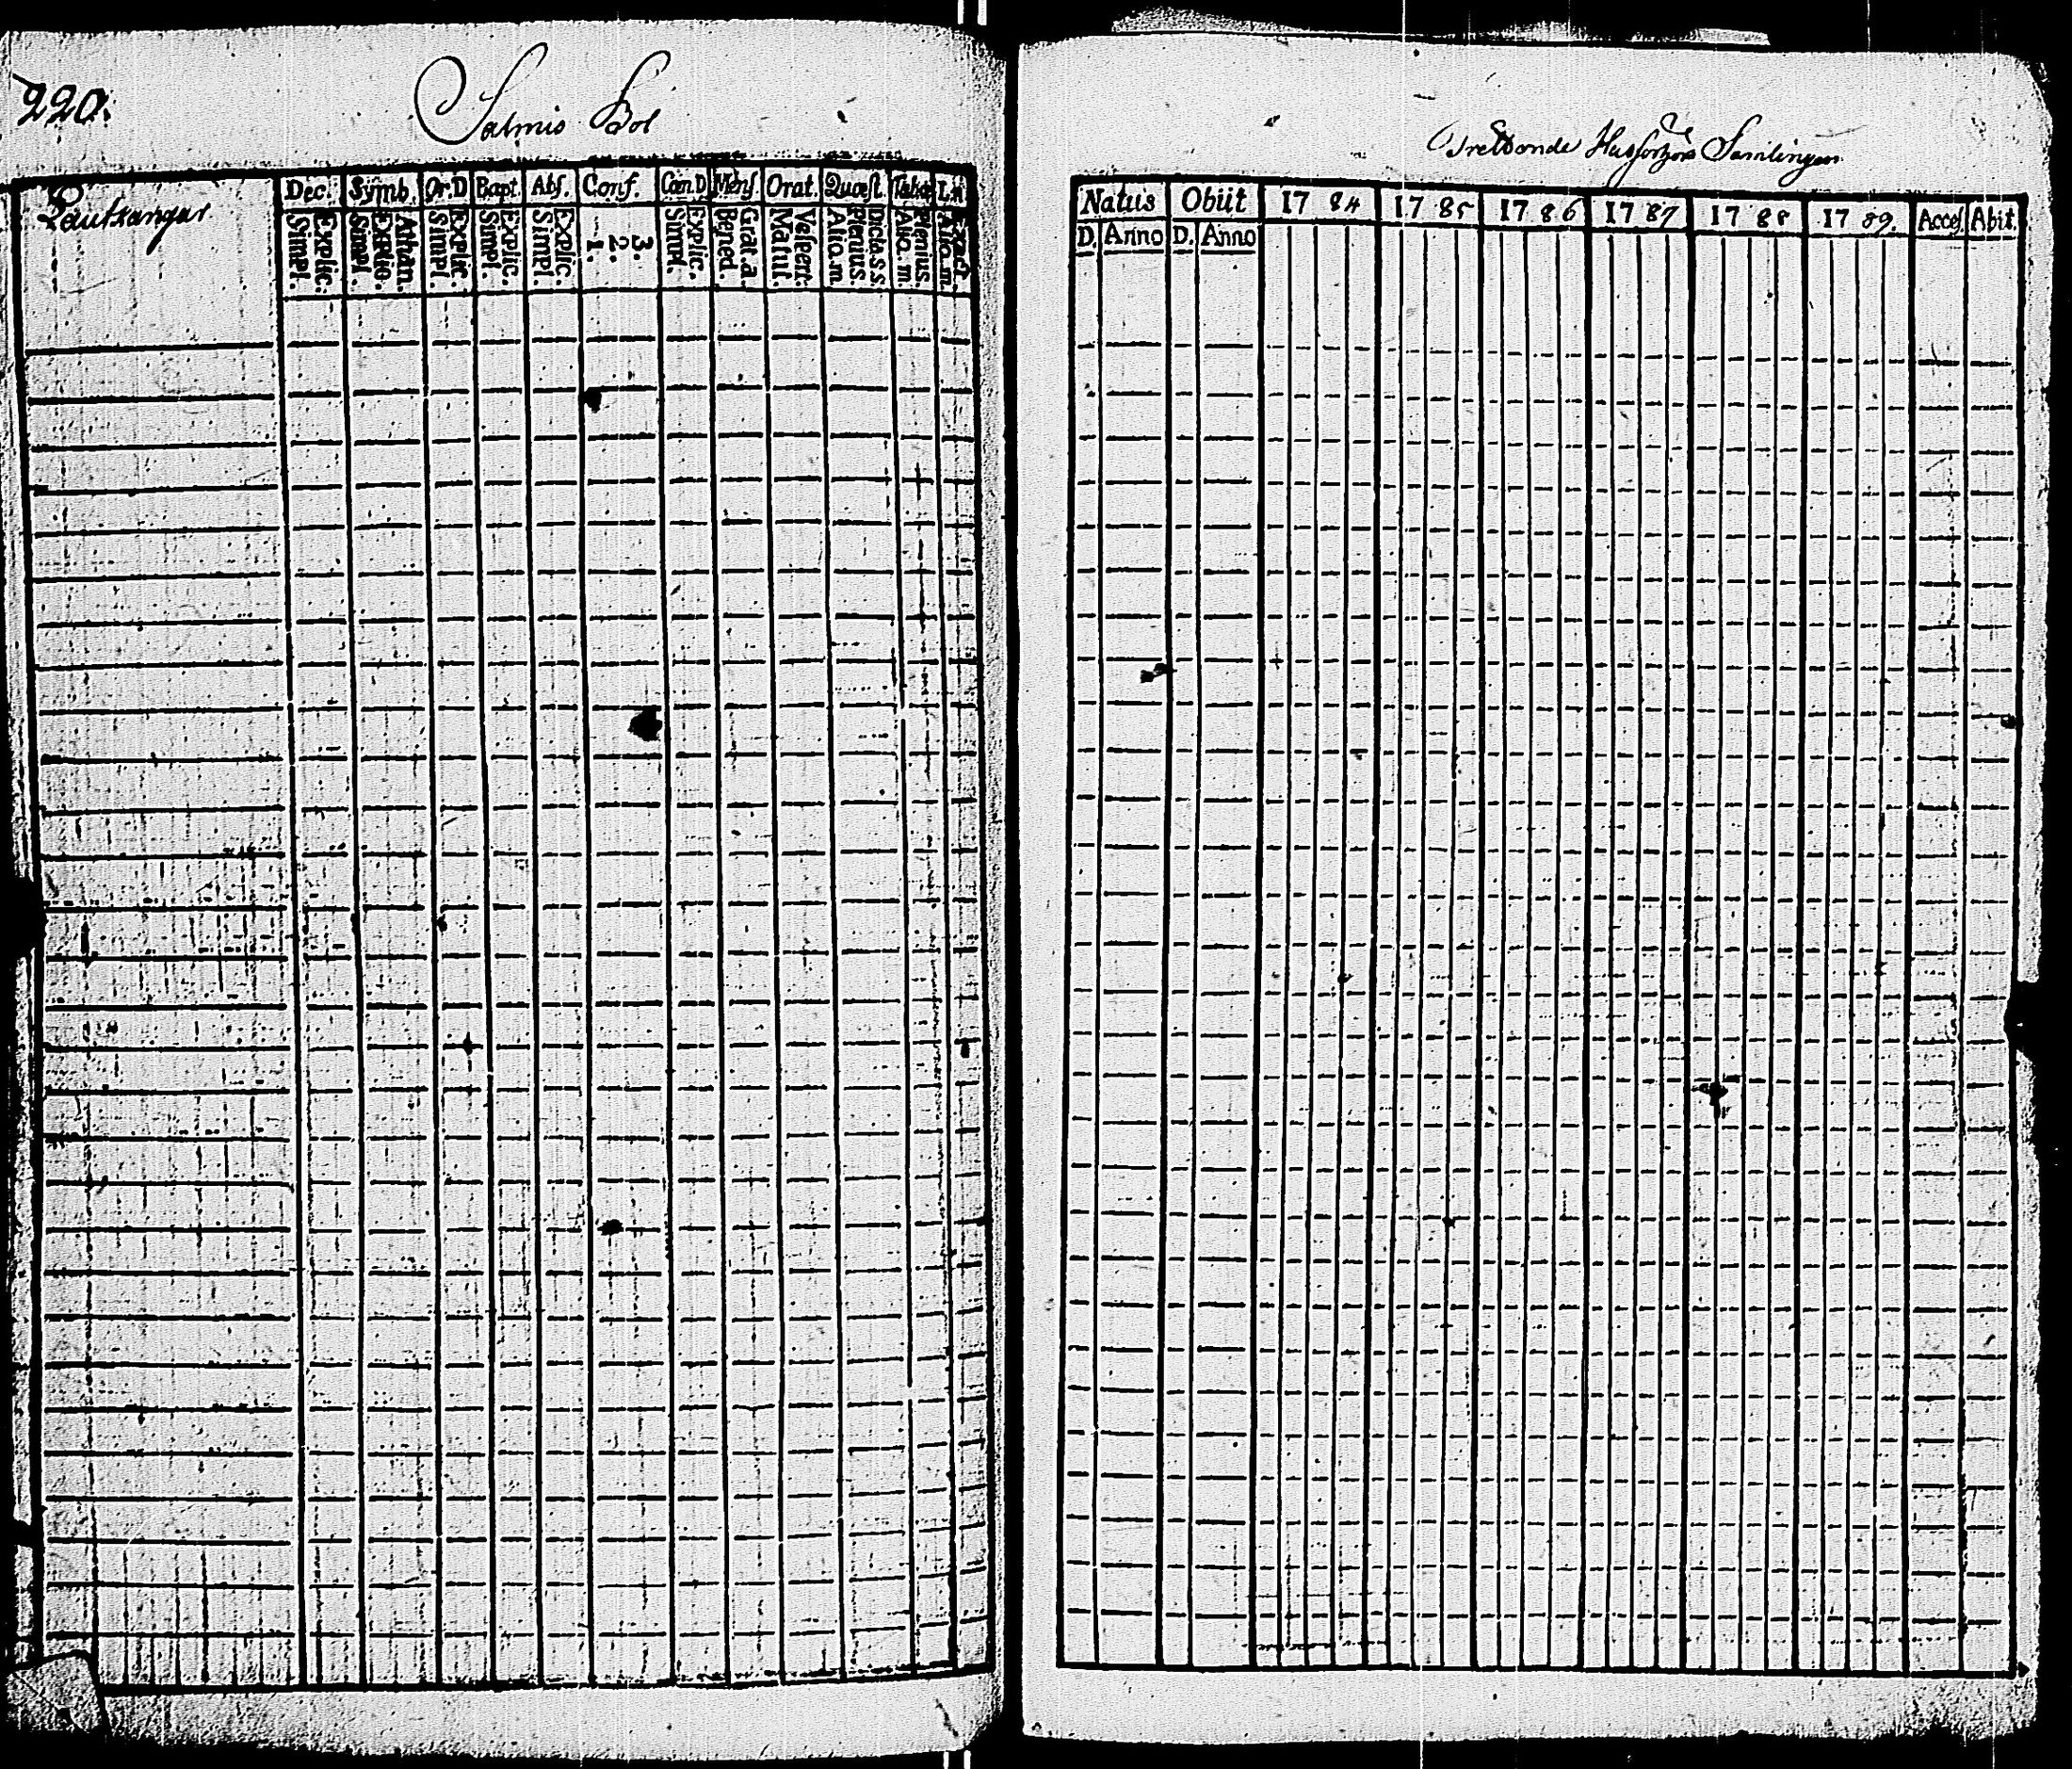 220.
Salmis Bol
Lautsangar
Dec. Symb. Or.D Bapt. Abs. Conf. Cœn.D Mens Orat. Quæst. Tabæ L.n
Explic. Simpl. Athan. Explic. Simpl. Explic. Simpl. Explic. Simpl. Explic. Simpl. 3. 2. 1. Explic. Simpl. Grat.a. Bened. Vespert. Matut. Dicta.s.s. Plenius Alio.m Plenius. Alio.m. Exact. Alio.m.
Trettonde Husförhörs Samlingen
Natus Obiit 1784 1785 1786 1787 1788 1789. Acces. Abit.
D. Anno D. Anno